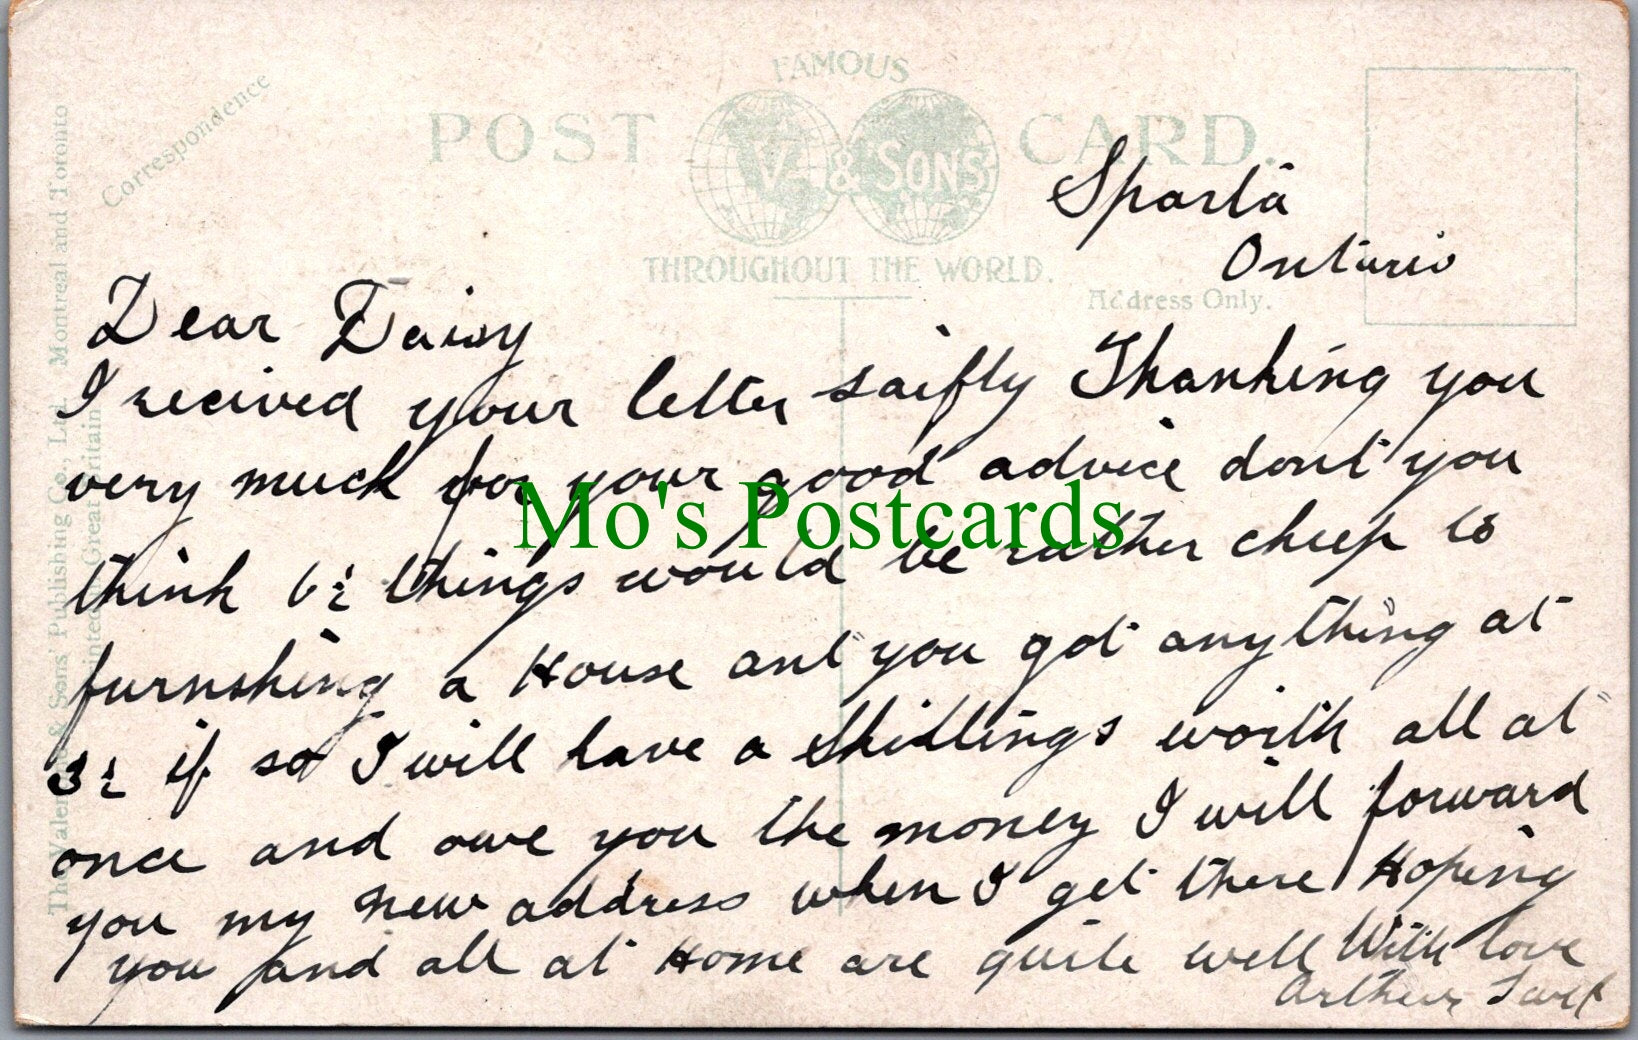 FAMOUS
POST CARD.
V. & SONS
THROUGHOUT THE WORLD.
Correspondence
Address Only.
Montreal and Toronto
Sparta
Ontario
Dear Daisy
I recived your letter saifly Thanking you
very much for your good advice dont you
think 6½ things would be rather cheep to
furnshing a House ant you got anything at
3½ if so I will have a shillings worth all at
once and owe you the money I will forward
you my new address when I get there Hoping
you and all at Home are quite well With love
Arthur
Mo's Postcards